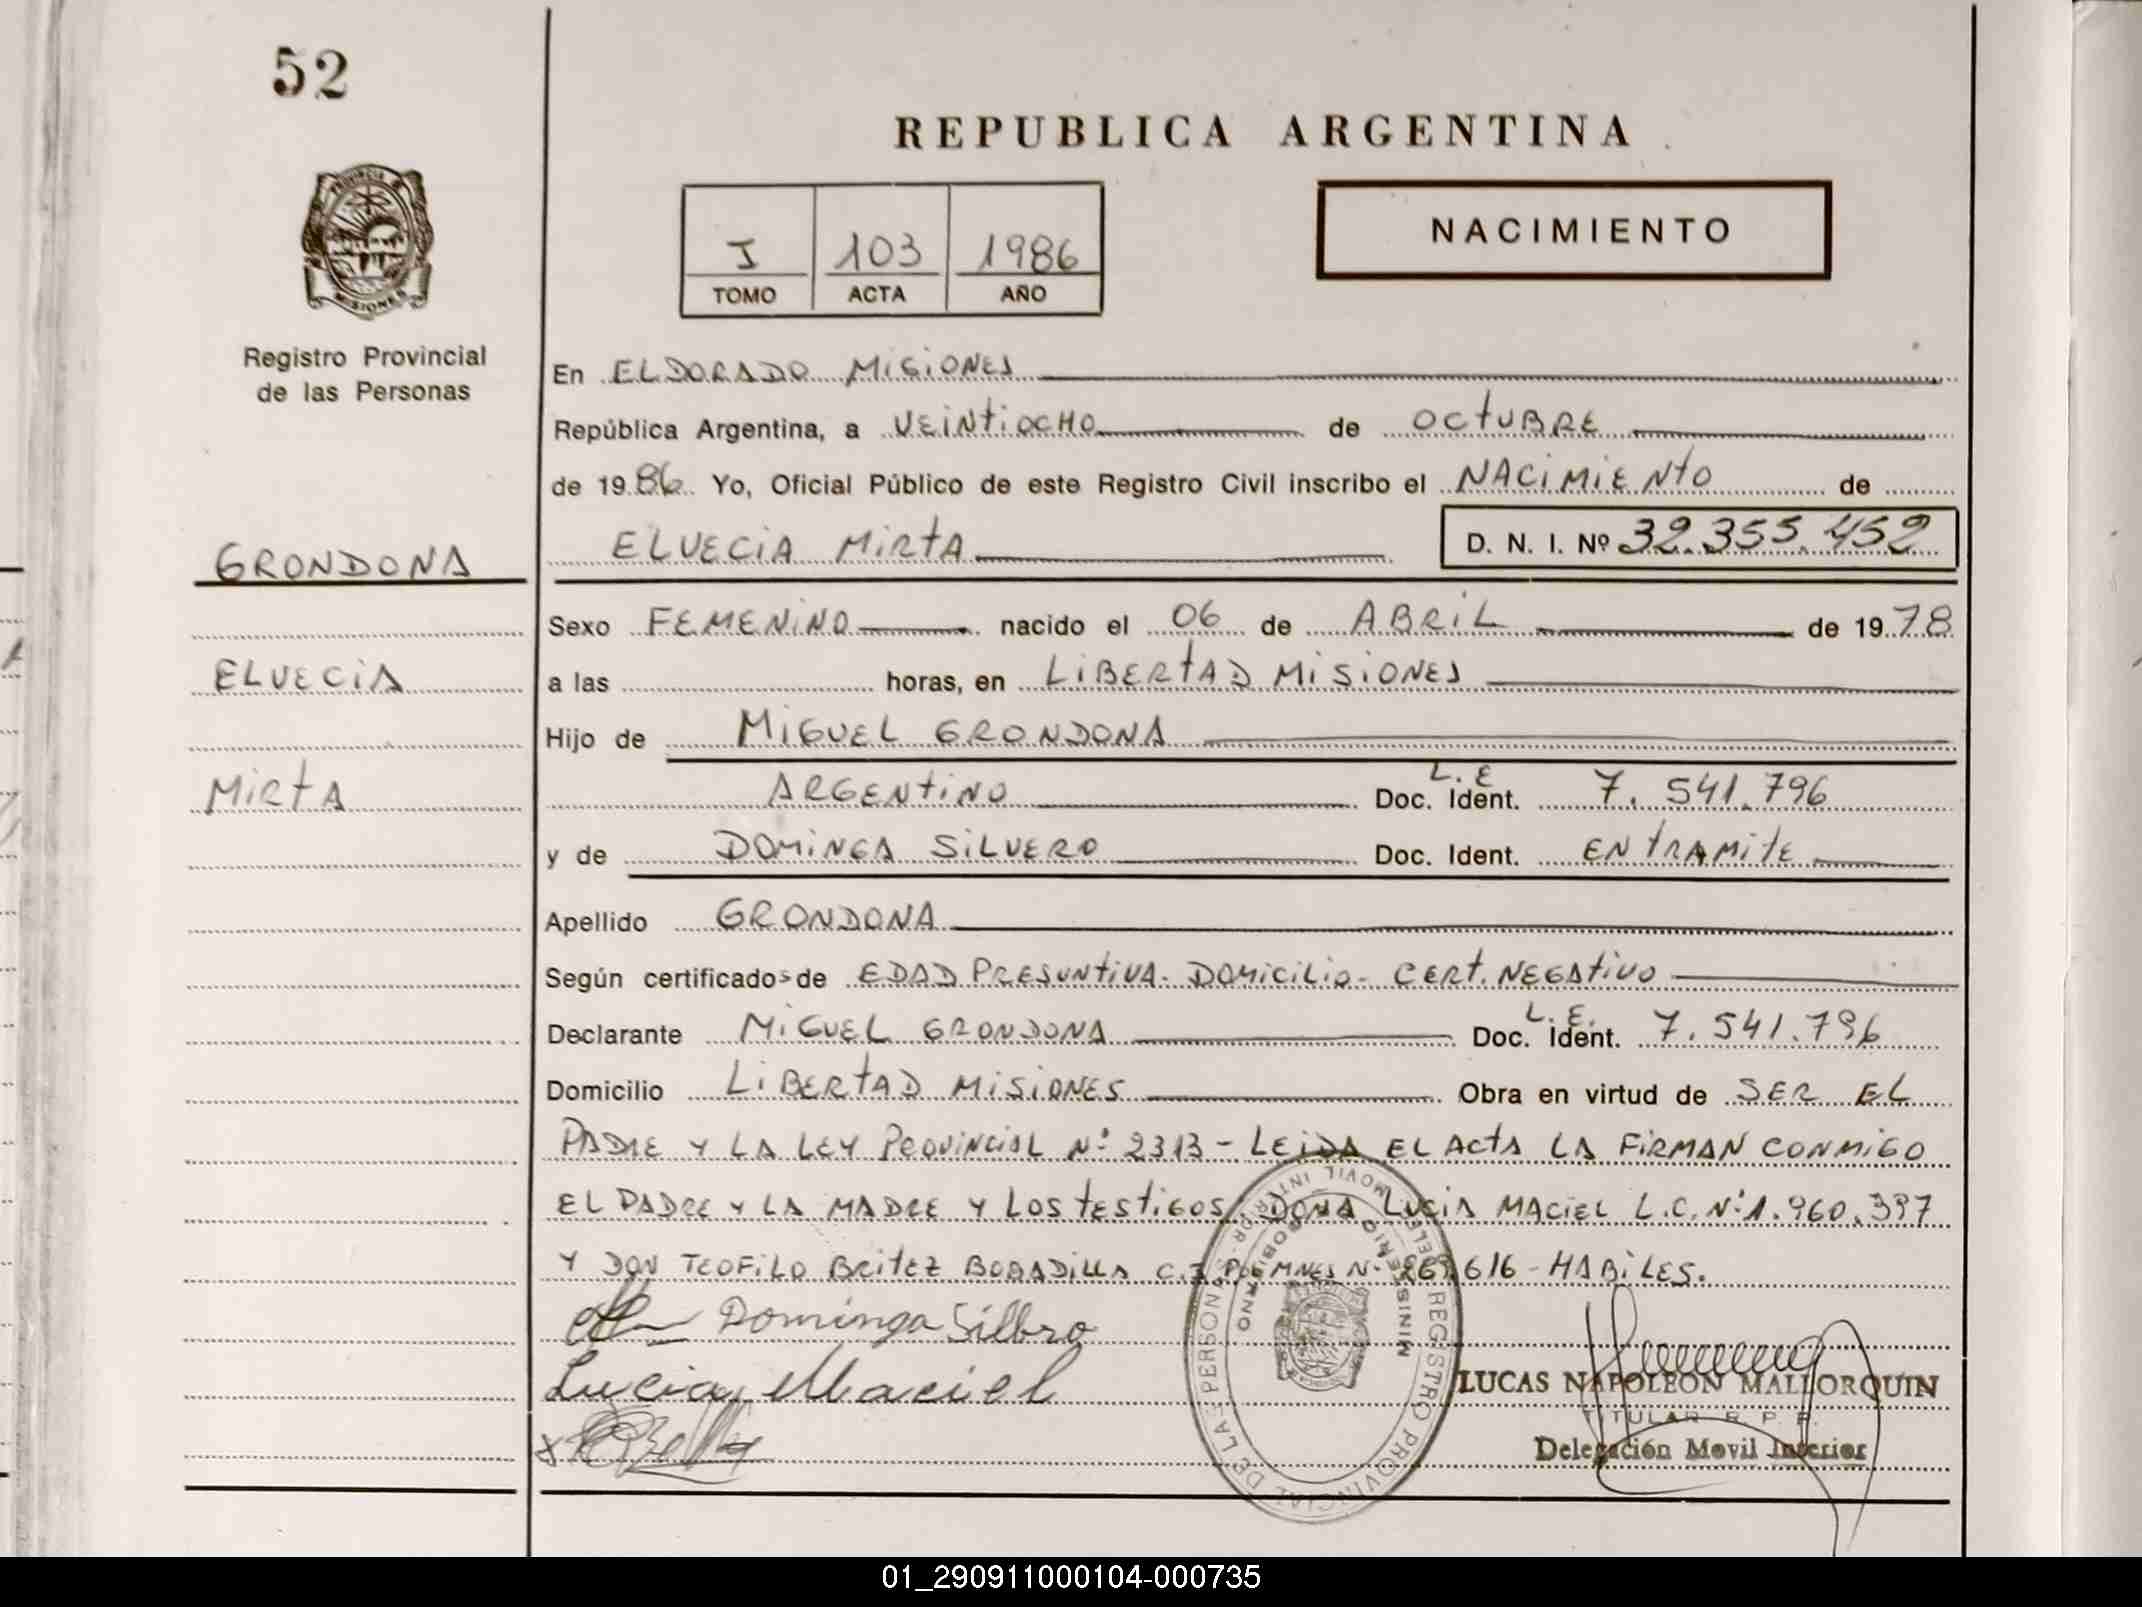 52
REPUBLICA ARGENTINA
PROVINCIA DE
MISIONES
Registro Provincial
de las Personas
I 103 1986
TOMO ACTA AÑO
NACIMIENTO
En ELDORADO MISIONES
República Argentina, a VEINTIOCHO de OCTUBRE
de 1986 Yo, Oficial Público de este Registro Civil inscribo el NACIMIENTO de
GRONDONA
ELVECIA MIRTA D. N. I. Nº 32.355.452
Sexo FEMENINO nacido el 06 de ABRIL de 1978
ELVECIA
a las horas, en LIBERTAD MISIONES
Hijo de MIGUEL GRONDONA
MIRTA
ARGENTINO Doc. Ident. L.E 7.541.796
y de DOMINGA SILVERO Doc. Ident. EN TRAMITE
Apellido GRONDONA
Según certificados de EDAD PRESUNTIVA- DOMICILIO- CERT. NEGATIVO
Declarante MIGUEL GRONDONA Doc. Ident. L.E. 7.541.796
Domicilio LIBERTAD MISIONES Obra en virtud de SER EL
PADRE Y LA LEY PROVINCIAL Nº 2313 - LEIDA EL ACTA LA FIRMAN CONMIGO
EL PADRE Y LA MADRE Y LOS TESTIGOS DOÑA LUCIA MACIEL L.C. Nº 1.960.397
Y DON TEOFILO BRITEZ BOBADILLA C.I. POL MNES Nº 616 - HABILES.
Dominga Silbro
Lucia Maciel
REGISTRO PROVINCIAL DE LAS PERSONAS
MINISTERIO GOBIERNO
LUCAS NAPOLEON MALLORQUIN
TITULAR R. P. P.
Delegación Movil Interior
01_290911000104-000735